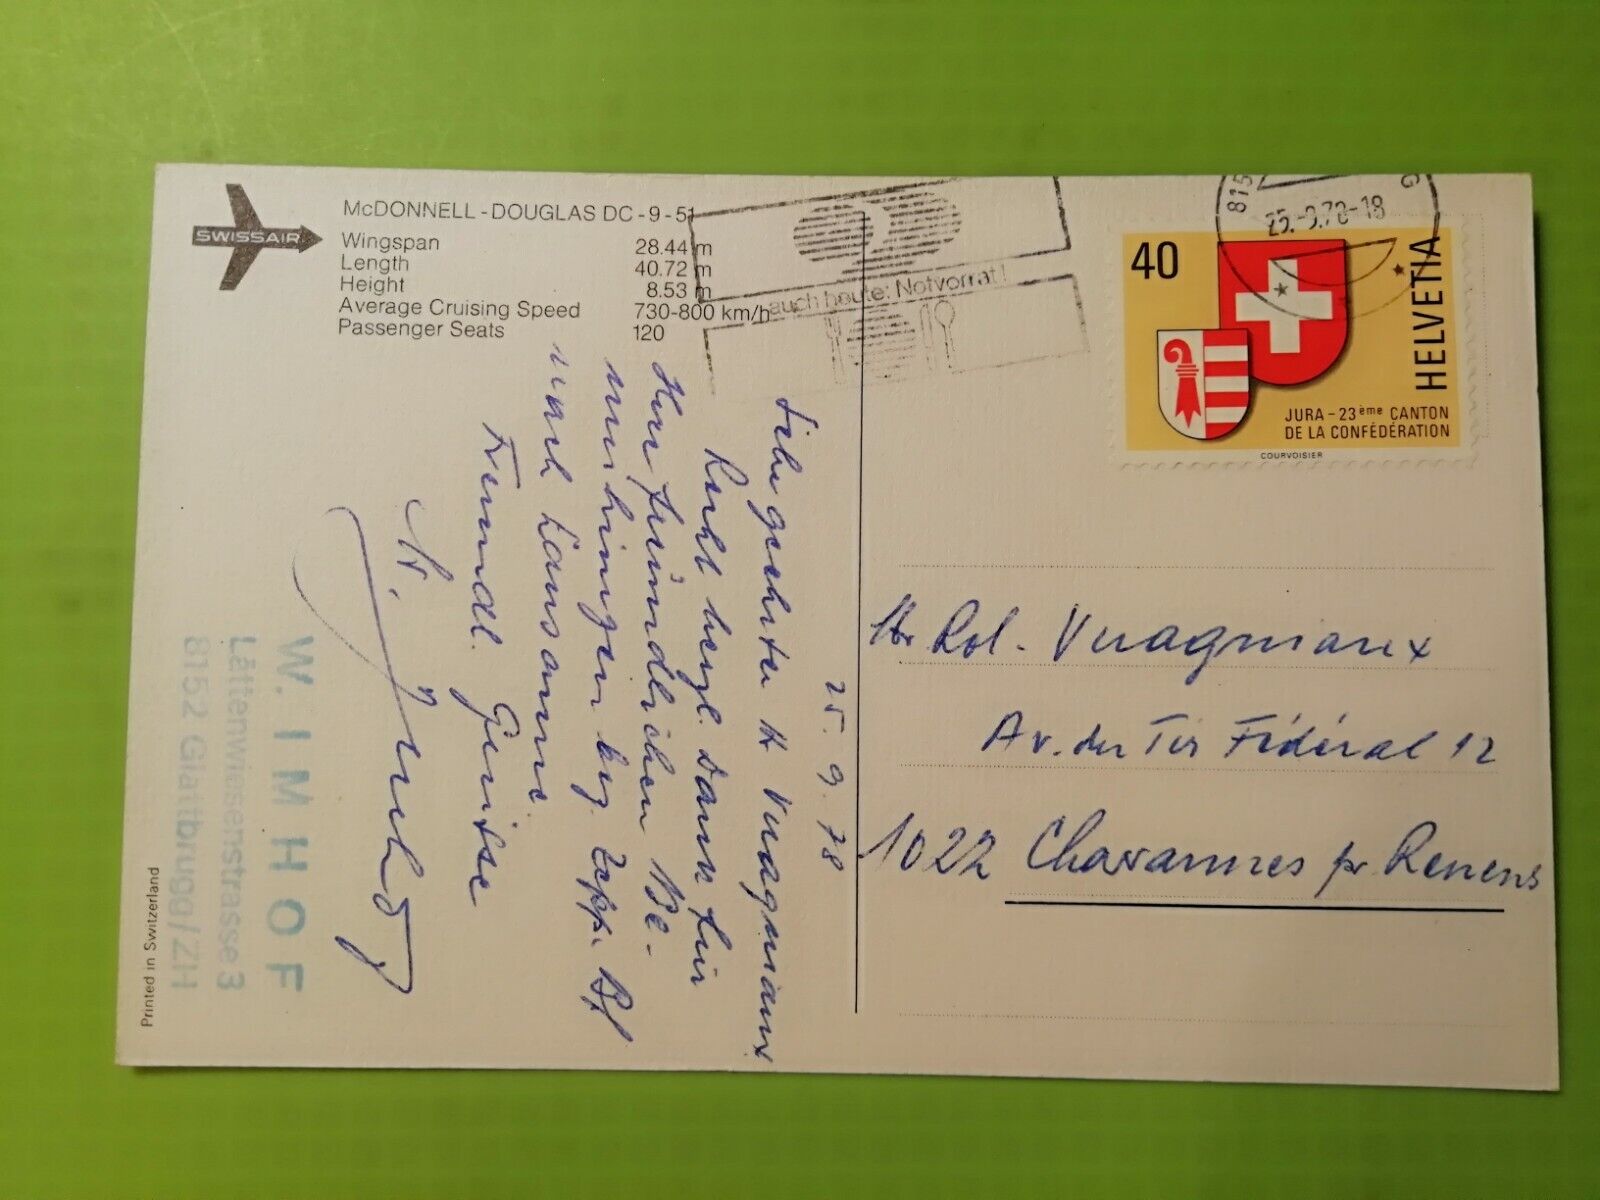 SWISSAIR
McDONNELL-DOUGLAS DC-9-51
Wingspan 28.44 m
Length 40.72 m
Height 8.53 m
Average Cruising Speed 730-800 km/h
Passenger Seats 120
auch heute: Notvorrat!
25.-9.78-18
40
HELVETIA
JURA - 23ème CANTON
DE LA CONFÉDÉRATION
COURVOISIER
25. 9. 78
Sehr geehrter H Vuagniaux
Recht herzl. Dank für
Ihre freundlichen Be-
mühungen bez. Zepp. Bf
nach Lausanne.
Freundl. Grüsse
W. Imhof
W. IMHOF
Lättenwiesenstrasse 3
8152 Glattbrugg/ZH
Printed in Switzerland
Hr Rol. Vuagniaux
Av. du Tir Fédéral 12
1022 Chavannes pr Renens